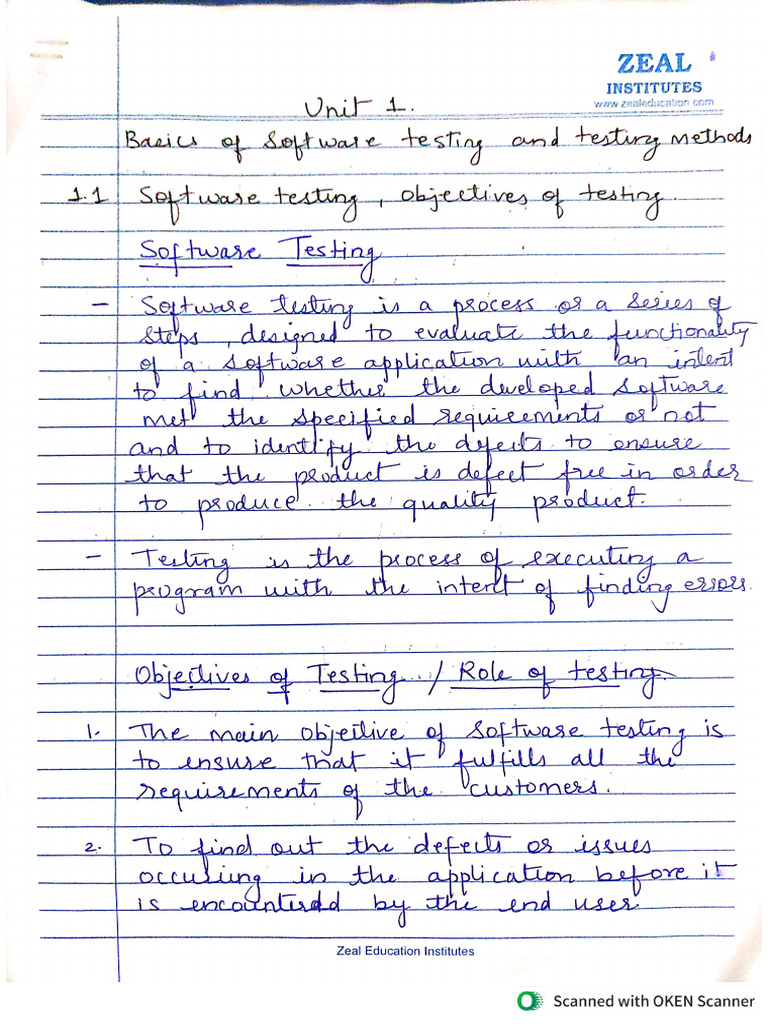 ZEAL
INSTITUTES
www.zealeducation.com
Unit 1.
Basics of Software testing and testing methods
1.1 Software testing, Objectives of testing.
Software Testing
- Software testing is a process or a series of
steps, designed to evaluate the functionality
of a software application with an intent
to find whether the developed software
met the specified requirements or not
and to identify the defects to ensure
that the product is defect free in order
to produce the quality product.
- Testing is the process of executing a
program with the intent of finding errors.
Objectives of Testing / Role of testing
1. The main objective of software testing is
to ensure that it fulfills all the
requirements of the customers.
2. To find out the defects or issues
occuring in the application before it
is encountered by the end user
Zeal Education Institutes
Scanned with OKEN Scanner